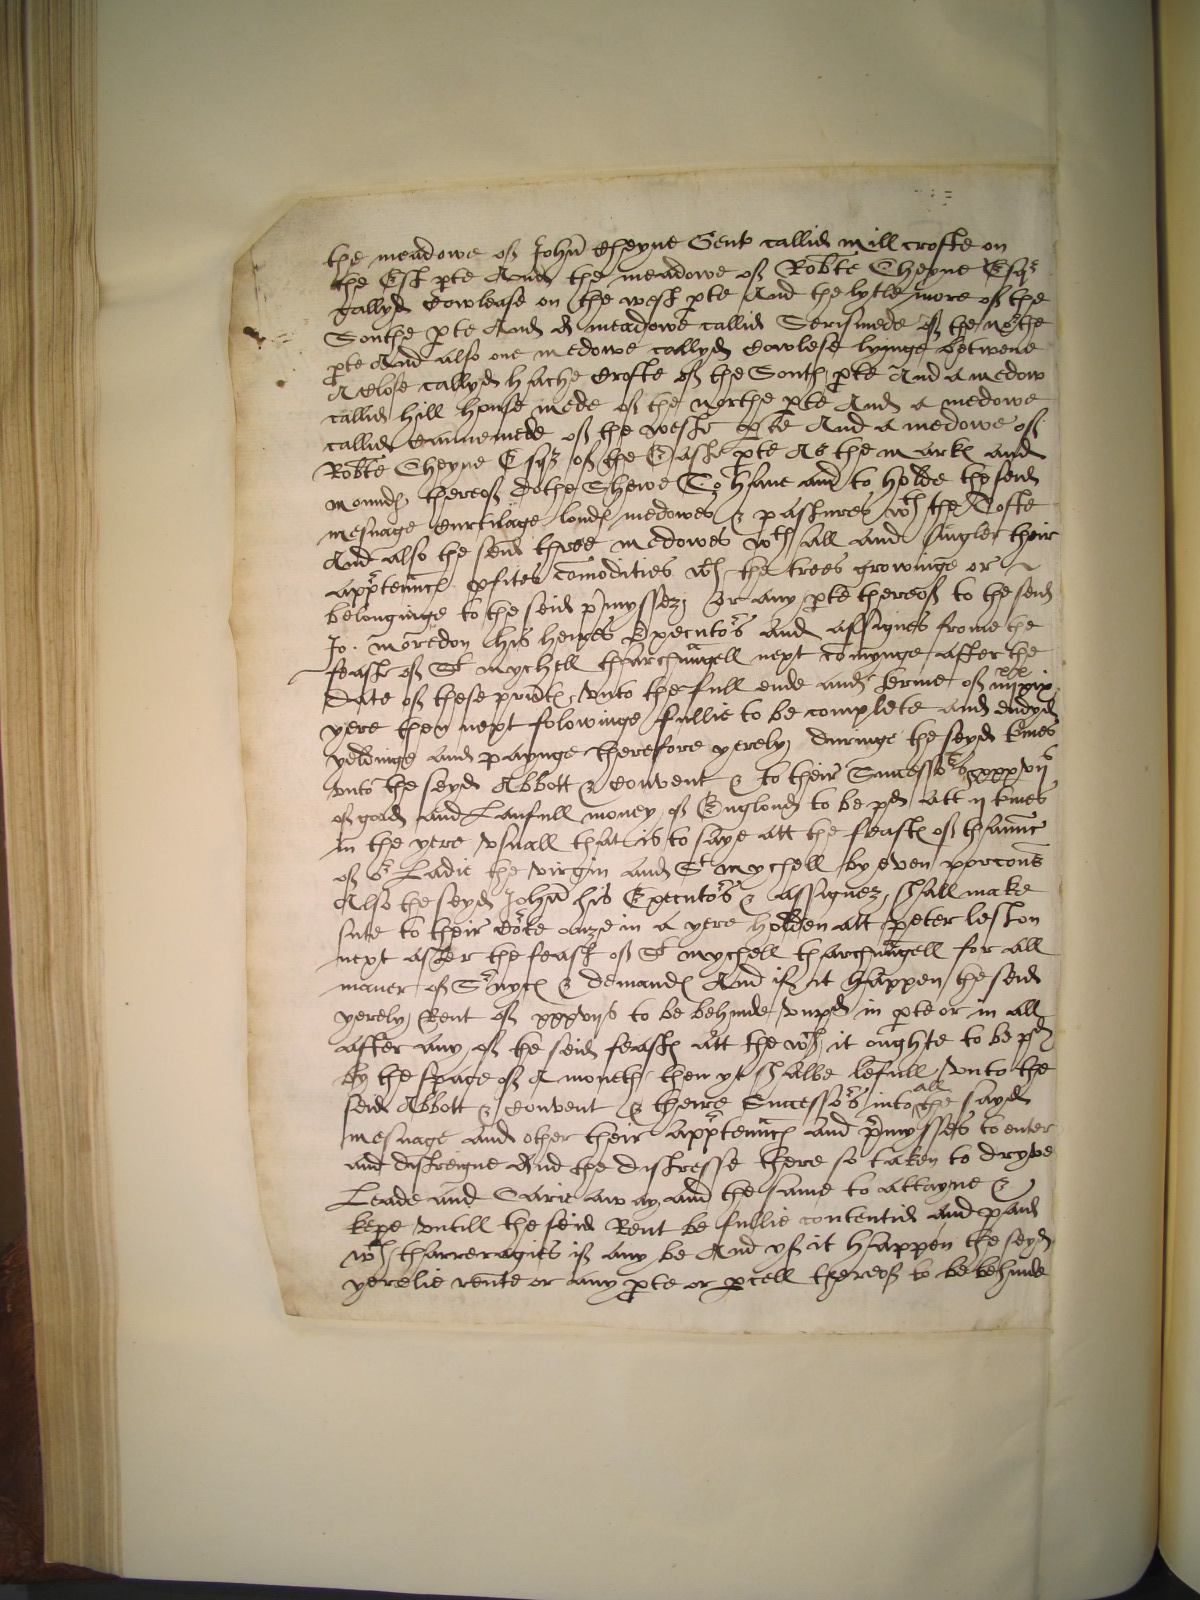 the meadowe off John Cheyne Gent callid mill crofte on
the Est pte And the meadowe off Robte Cheyne Esqr
callyd Cowlease on the west pte And the lytle more off the
Southe pte And A meadowe callid Serismede off the northe
pte And also one medowe callyd Cowlese lyinge betwene
A close callyd hache Crofte off the South pte And a medow
callid hill house mede off the northe pte And a medowe
callid off the weste pte And a medowe off
Robte Cheyne Esqr off the Easte pte As the markes and
moundes thereoff dothe Shewe To have and to holde the seid
mesuage Curtilage londes medowes & pastures wth the Crofte
And also the seid three medowes wth all and singler their
apptennces pfites comodities wth the trees growinge or
belonginge to the seid pmyssez or any pte thereoff to the seid
Jo. moredon his heires Executors and assignes frome the
feaste off St mychell tharchangell next comynge after the
Date off these psentes Vnto the full ende and terme off iiijxx xix
yere then next folowinge fullie to be complete and endyd
yeldinge and payinge therefore yerely duringe the seyd times
vnto the seyd Abbott & Convent & to their Successors xxxvijs
off good and Laufull money off Englond to be pd att ij times
in the yere Vsuall that is to saye att the feastes off thannc
off or Ladie the Virgin and St mychell by even porcons
Also the seyd John his Executors & assignez shall make
sute to their Corte onze in a yere holden att peter leston
next after the feast off St mychell tharchangell for all
maner off Srvyces & demandes And iff it happen the seid
yerely Rent off xxxvijs to be behinde Vnpd in pte or in all
after any off the seid feastes att the wch it oughte to be pd
by the space off A moneth then yt shalbe lefull Vnto the
seid Abbott & Convent & theire Successors into all the sayd
mesuage and other their apptennces and pmysses to enter
and distreigne And the distresse there so taken to dryve
Leade and Carie away and the same to attayne &
kepe Vntill the seid Rent be fullie contentid and paid
wth tharreragies iff any be And yff it happen the seyd
yerelie rente or any pte or pcell thereoff to be behinde